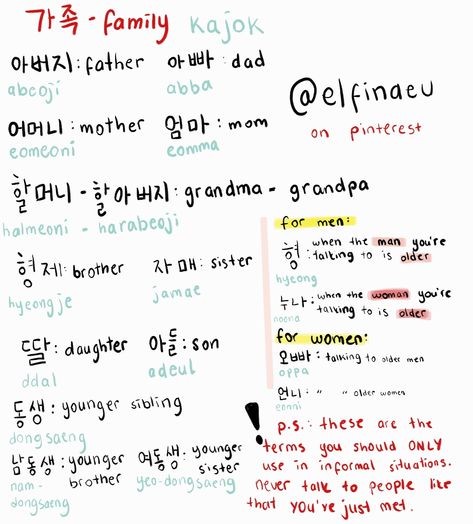 가족 - family kajok
아버지: father 아빠: dad
abcoji abba
어머니: mother 엄마: mom
eomeoni eomma
@elfinaeu
on pinterest
할머니 - 할아버지: grandma - grandpa
halmeoni - harabeoji
형제: brother 자매: sister
hyeongje jamae
딸: daughter 아들: son
ddal adeul
동생: younger sibling
dongsaeng
남동생: younger brother
nam-dongsaeng
여동생: younger sister
yeo-dongsaeng
for men:
형: when the man you're
talking to is older
hyeong
누나: when the woman you're
noona talking to is older
for women:
오빠: talking to older men
oppa
언니: " " older women
eonni
! p.s.: these are the
terms you should ONLY
use in informal situations.
never talk to people like
that you've just met.